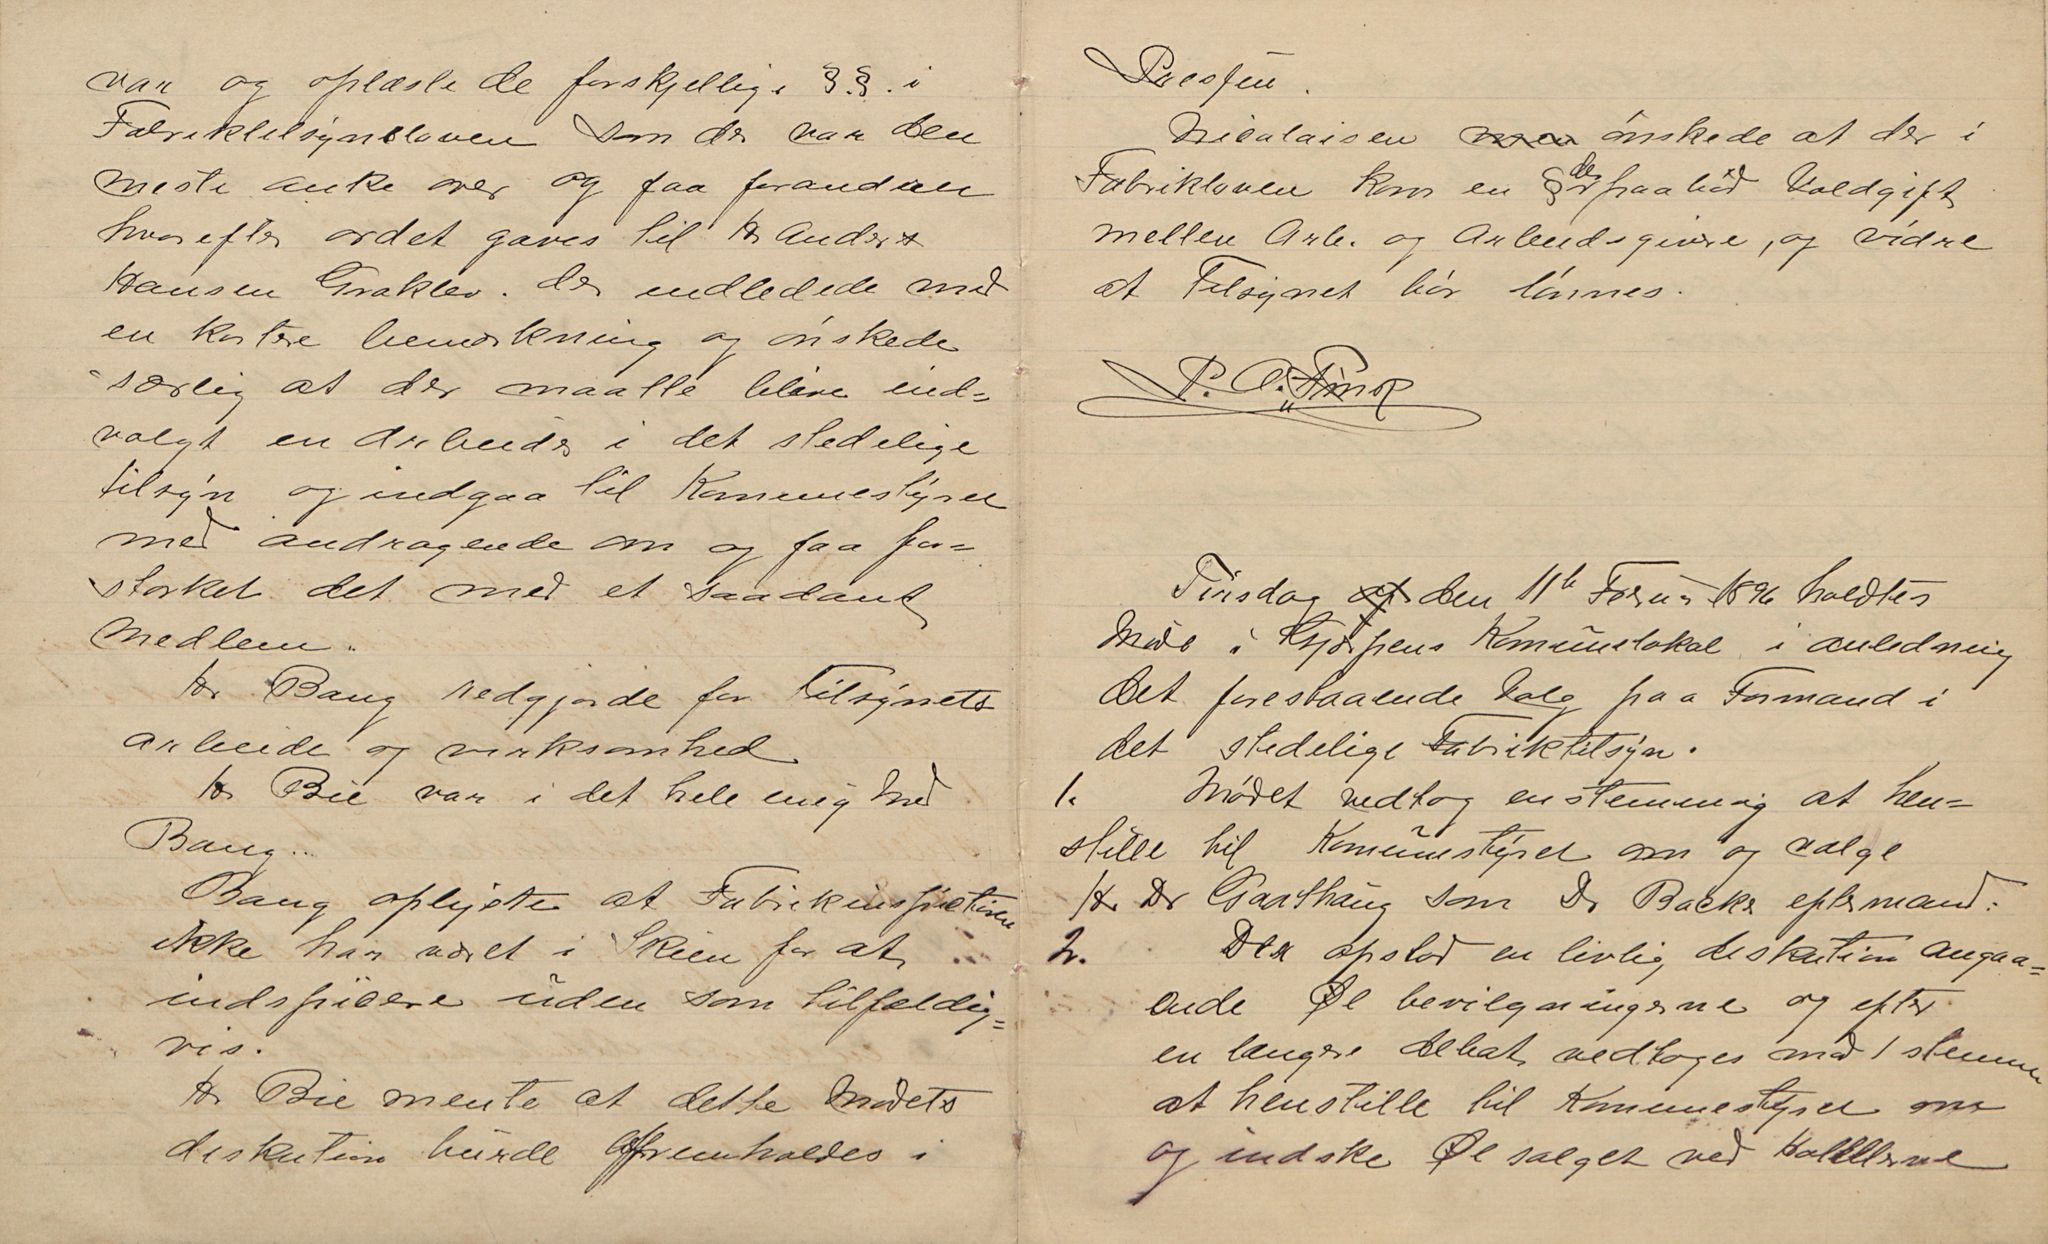 var og oplæste de forskjellige §.§. i
Fabriktilsynsloven som der var den
meste anke over og faa forandren
hvorefter ordet gaves til Hr Anders
Hansen Graklev. der indledede med
en kortere bemærkning og ønskede
særlig at der maatte blive ind=
valgt en Arbeider i det stedelige
tilsyn og indgaa til Komunestyret
med andragende om og faa for=
stærket det med et saadant
Medlem.
Hr Bang redgjorde for Tilsynets
arbeide og virksomhed
Hr Bie var i det hele enig Med
Bang..
Bang oplyste at Fabrikinspectionen
ikke har været i Skien for at
indspisere uden som tilfældig=
vis.
Hr Bie mente at dette Mødets
diskution burde fremholdes i
Pressen.
Nicolaisen ønskede at der i
Fabrikloven kom en § der paabød Voldgift
mellen Arb. og Arbeidsgivere, og vidre
at Tilsynet bør lønnes.
P. A.
Tirsdag den 11te Februar 1896 holdtes
Møde i Gjerpens Komunelokal i anledning
det forestaaende Valg paa Formand i
det stedelige Fabriktilsyn.
1. Mødet vedtog enstemmig at hen=
stille til Komunestyret om og vælge
Hr Dr Gaashaug som Dr Backe eftermand.
2. Der opstod en livlig diskution angaa=
ende Øl bevilgningerne og efter
en længere debat vedtoges mod 1 stemme
at henstille til Komunestyret om
og indske Øl salget ved Hotellerne